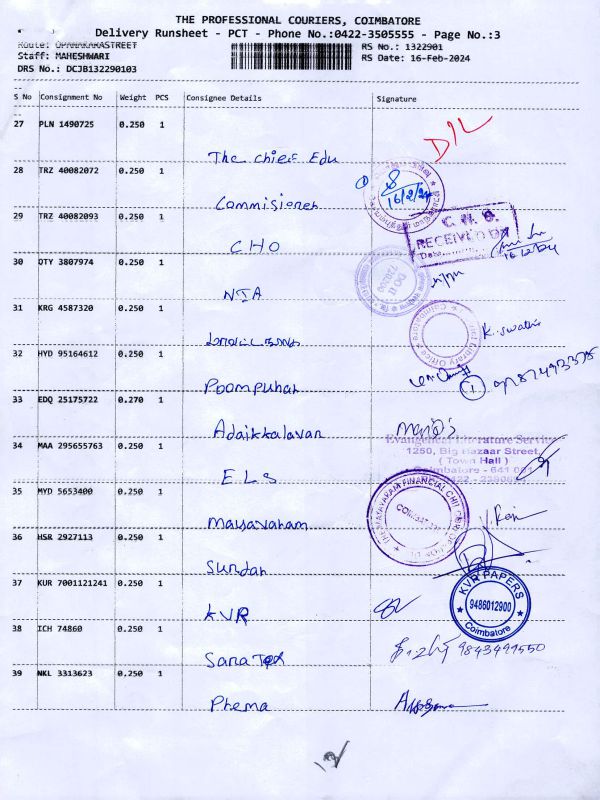 THE PROFESSIONAL COURIERS, COIMBATORE
Delivery Runsheet - PCT - Phone No.:0422-3505555 - Page No.:3
Route: OPANAKARASTREET
RS No.: 1322901
Staff: MAHESHWARI
RS Date: 16-Feb-2024
DRS No.: DCJB132290103
S No Consignment No Weight PCS Consignee Details Signature
27 PLN 1490725 0.250 1 The Chief Edu D/L
28 TRZ 40082072 0.250 1 Commisioner 16/2/24
29 TRZ 40082093 0.250 1 CHO
RECEIVED
16/2/24
30 QTY 3807974 0.250 1 NIA
31 KRG 4587320 0.250 1 K. Swathi
Library Office
Coimbatore
32 HYD 95164612 0.250 1 Poompuhar
33 EDQ 25175722 0.270 1 Adaikkalavan
34 MAA 295655763 0.250 1 E.L.S
Evangelical Literature Service
1250, Big Bazaar Street,
( Town Hall )
Coimbatore - 641 001
35 MYD 5653400 0.250 1 Mayavaram
MAYAVARAM FINANCIAL CHIT
36 HSR 2927113 0.250 1 Sundar
37 KUR 7001121241 0.250 1 KVR
KVR PAPERS
9486012900
Coimbatore
38 ICH 74860 0.250 1
39 NKL 3313623 0.250 1 Phema